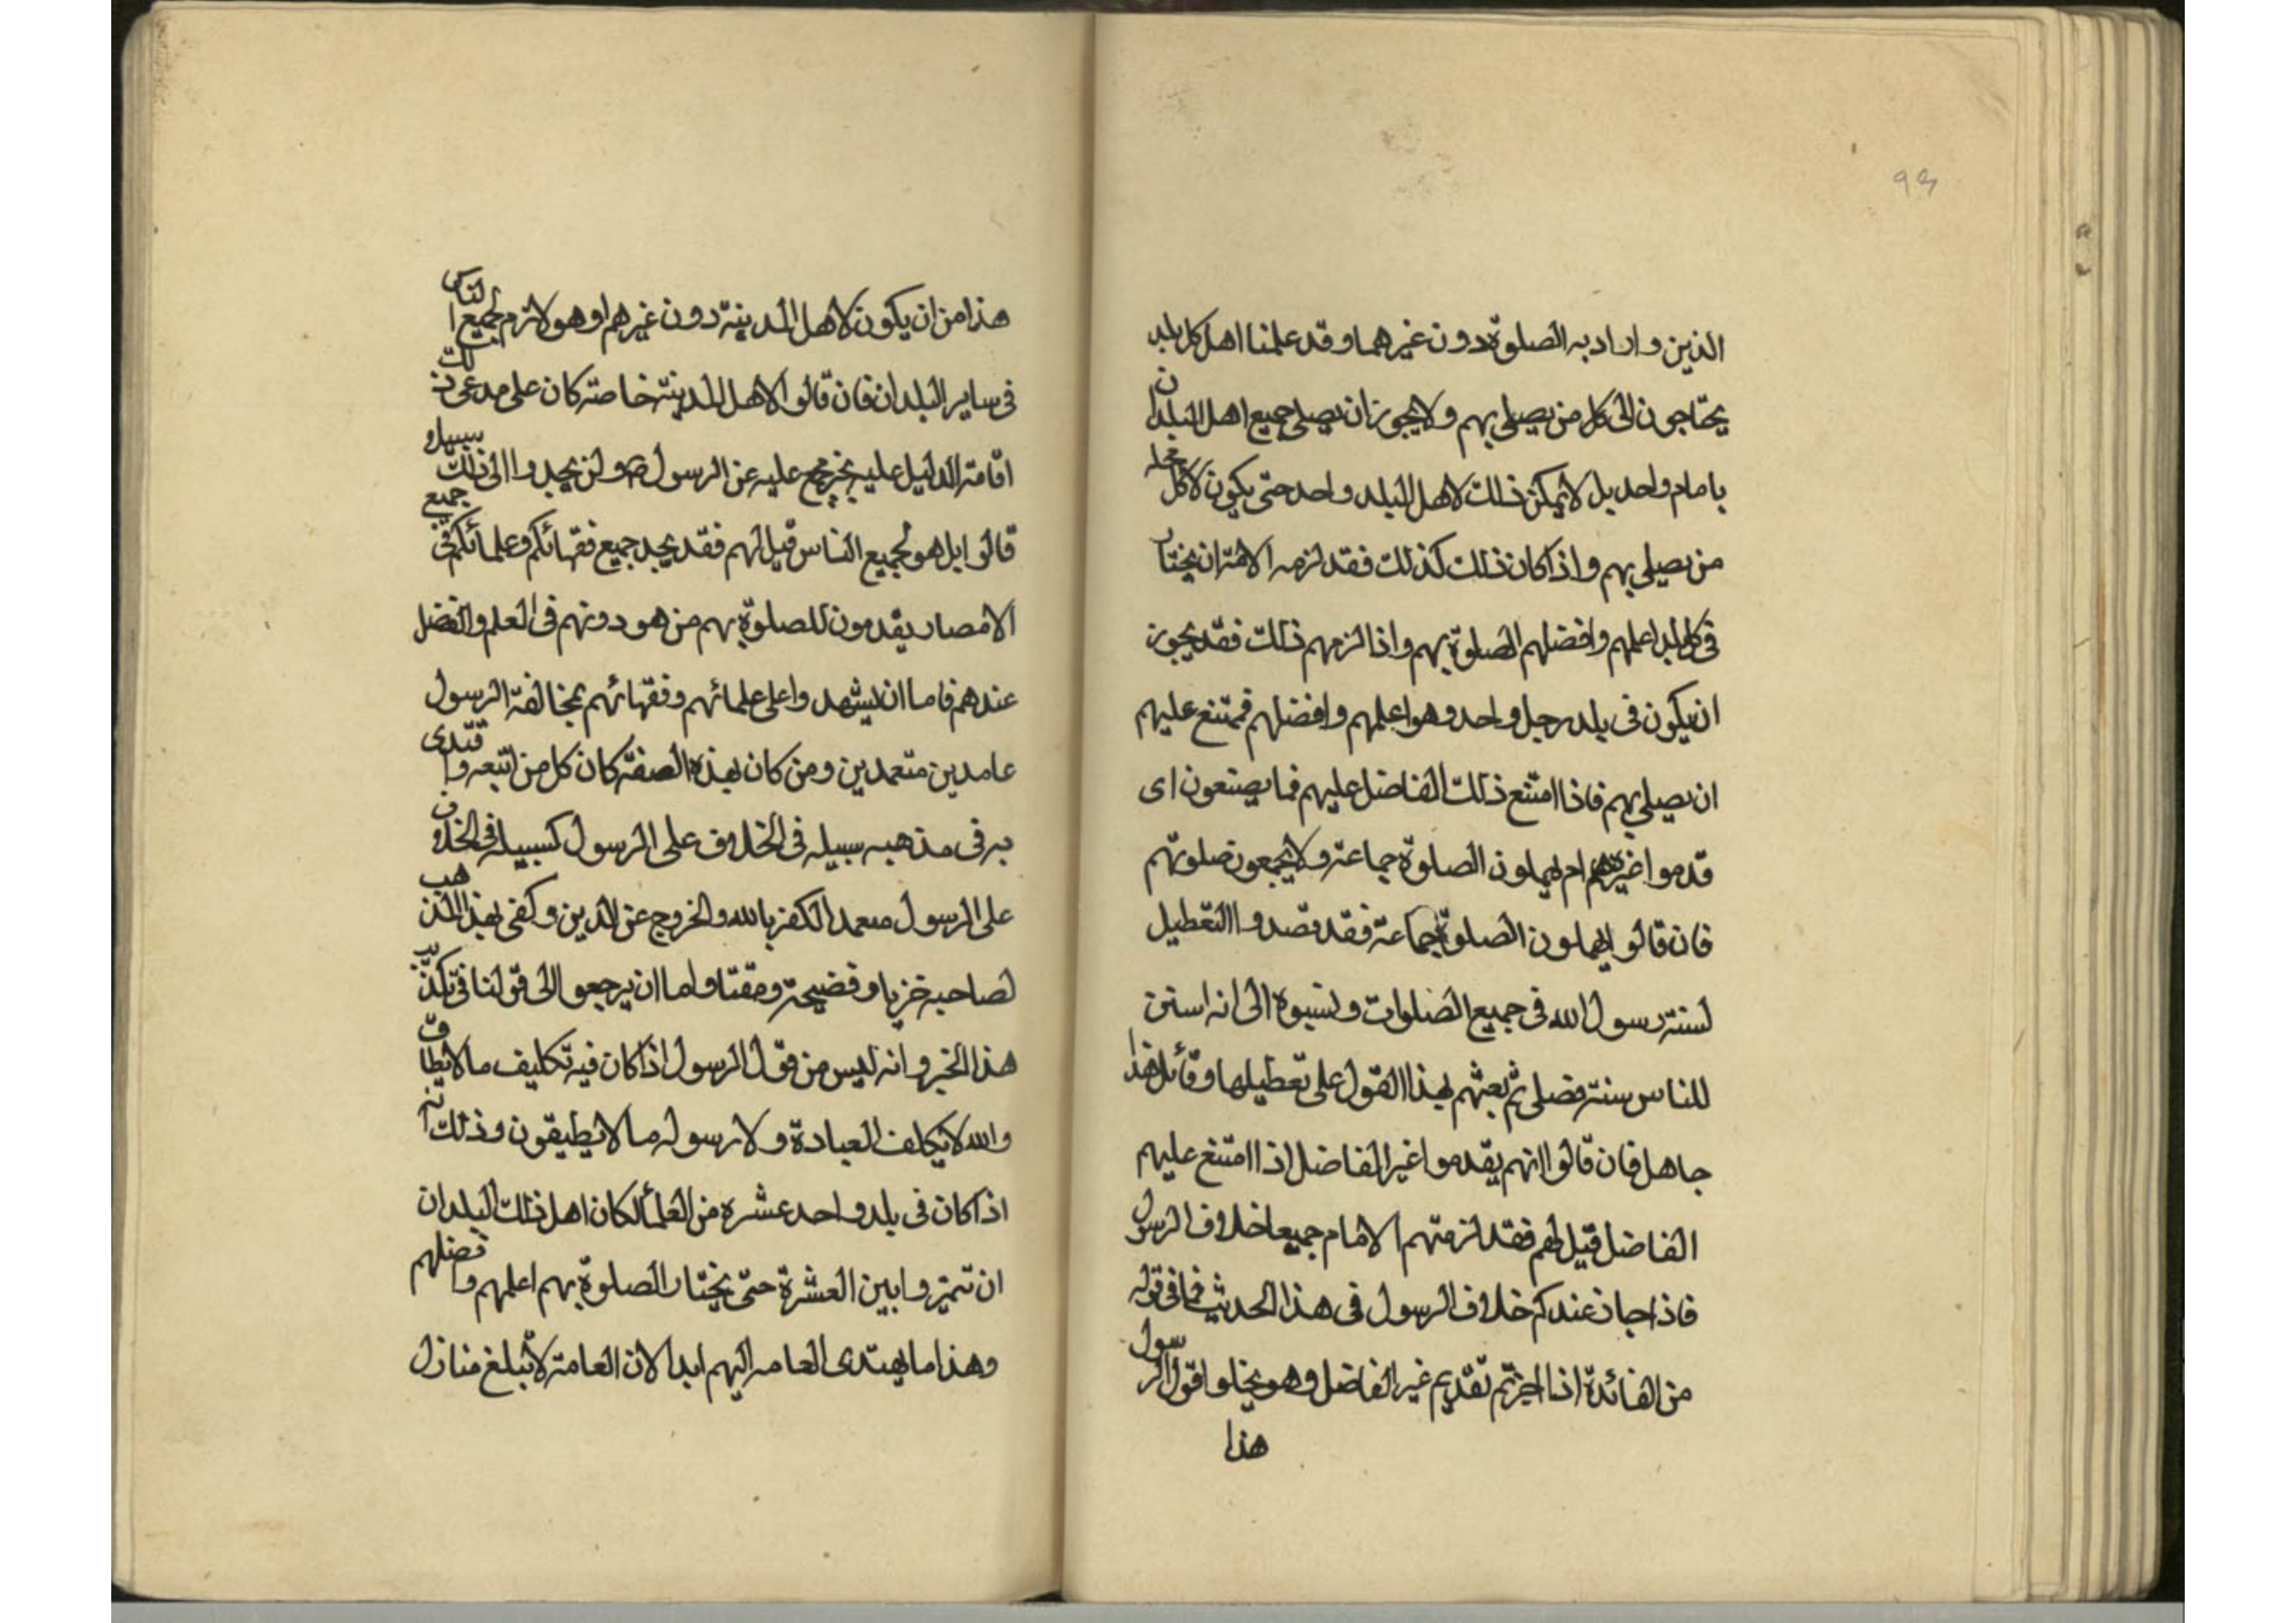 93
الذين واراد به الصلوة دون غيرهما وقد علمنا اهل كل بلد
يحتاجون الى كل من يصلى بهم ولا يجوز ان يصلى جميع اهل البلدان
بامام واحد بل لا يمكن ذلك لاهل البلد واحد حتى يكون لاكل محله
من يصلى بهم واذا كان ذلك كذلك فقد لزمه الامة ان يختار
فى كل بلد اعلمهم وافضلهم الصلوة بهم واذا لزمهم ذلك فقد يجوز
ان يكون فى بلد رجل واحد وهو اعلمهم وافضلهم فمتنع عليهم
ان يصلى بهم فاذا امتنع ذلك الفاضل عليهم فما يصنعون اى
قدموا غيرهم ام يهملون الصلوة جماعة ولا يجمعون صلوتهم
فان قالوا يهملون الصلوة جماعة فقد قصدوا التعطيل
لسنة رسول الله فى جميع الصلوات ونسبوه الى انه استن
للناس سنة فضلى ثم بعثهم بهذا القول على تعطيلها وقائل هذا
جاهل فان قالوا انهم يقدموا غير الفاضل اذا امتنع عليهم
الفاضل قيل لهم فقد لزمتهم الامام جميعا خلاف الرسول
فاذا جاز عندكم خلاف الرسول فى هذا الحديث فما فى قوله
من الفائدة اذا اجزتم تقديم غير الفاضل وهو يخلوا قول الرسول
هذا
هذا من ان يكون لاهل المدينة دون غيرهم او هو لازم لجميع الناس
فى ساير البلدان فان قالوا لاهل المدينة خاصة كان على مدعى ذلك
اقامة الدليل عليه بخبر مجمع عليه عن الرسول ص ولن يجدوا الى ذلك سبيلا
قالوا بل هو لجميع الناس قيل لهم فقد يجد جميع فقهائكم وعلمائكم فى جميع
الامصار يقدمون للصلوة بهم من هو دونهم فى العلم والفضل
عندهم فاما ان يشهدوا على علمائهم وفقهائهم بمخالفة الرسول
عامدين متعمدين ومن كان بهذه الصفة كان كل من اتبعه واقتدى
به فى مذهبه سبيله فى الخلاف على الرسول كسبيله فى الخلاف
على الرسول متعمد الكفر بالله والخروج عن الدين وكفى بهذا المذهب
لصاحبه خزيا وفضيحة ومقتا واما ان يرجعوا الى قولنا فى تكذيب
هذا الخبر وانه ليس من قول الرسول اذا كان فيه تكليف ما لا يطاق
والله لا يكلف العبادة ولا رسوله ما لا يطيقون وذلك انه
اذا كان فى بلد واحد عشرة من العلماء لكان اهل ذلك البلدان
ان تميزوا بين العشرة حتى يختار الصلوة بهم اعلمهم وافضلهم
وهذا ما يهتدى العامه اليهم ابدا لان العامة لا تبلغ منازل